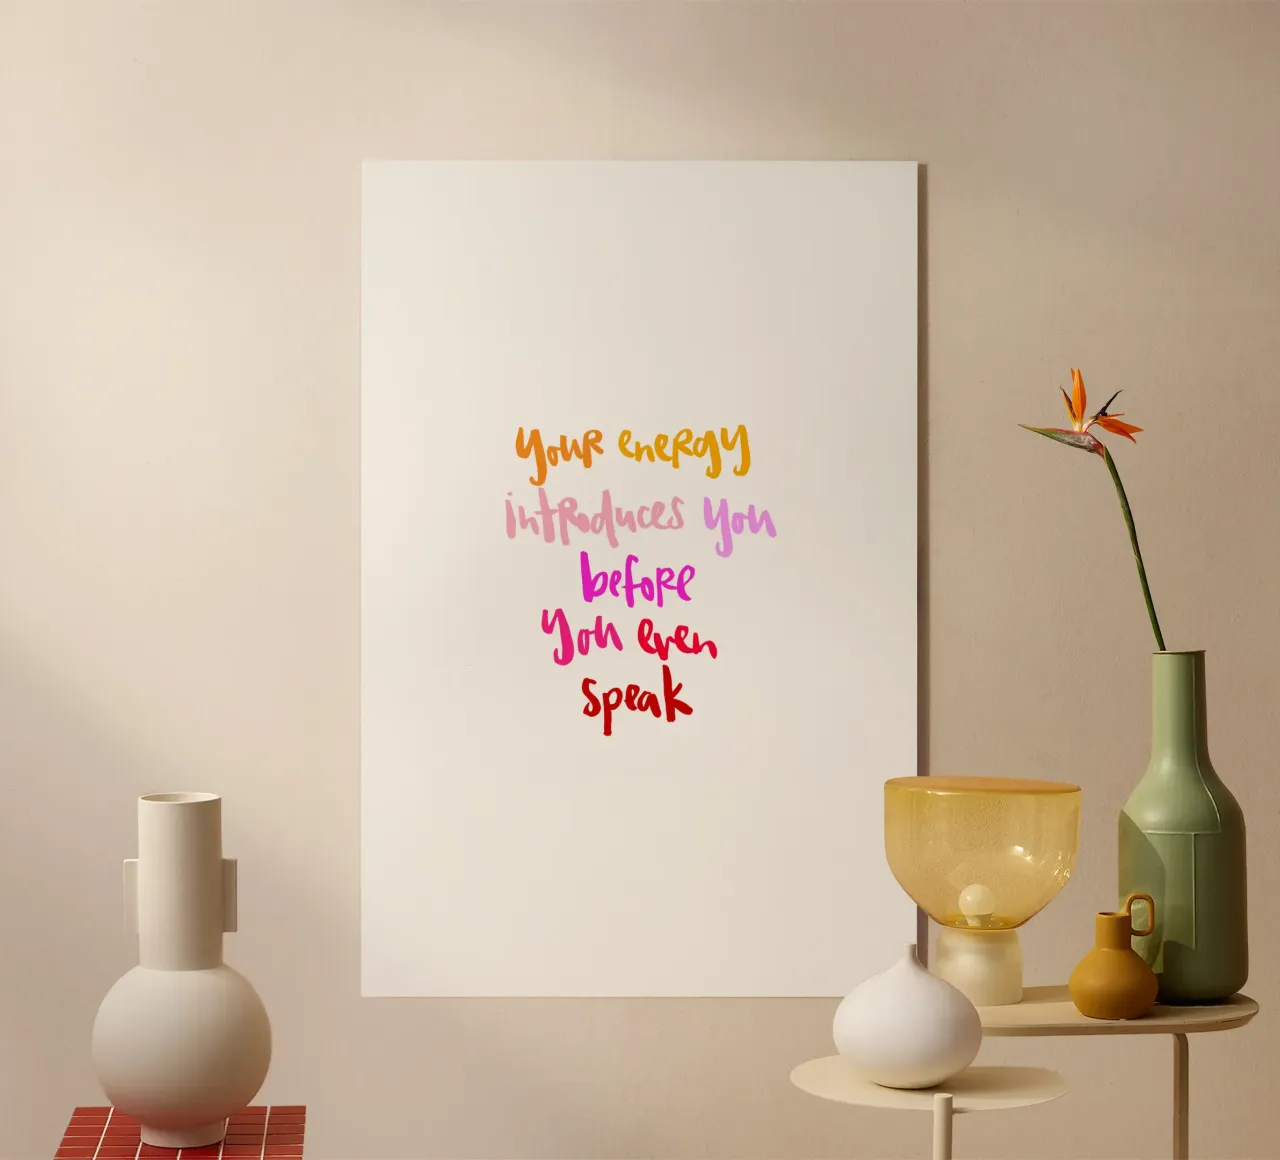 your energy
introduces you
before
you even
speak